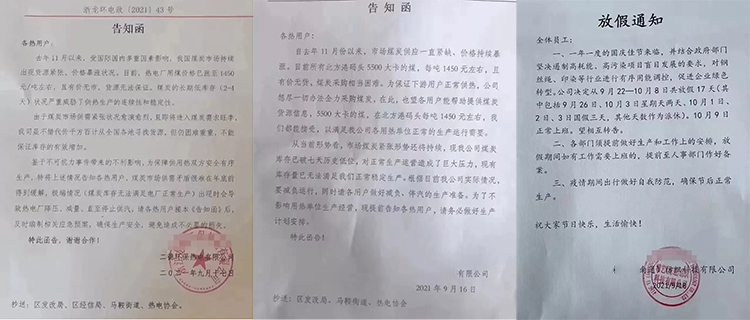 浙龙环电政〔2021〕43号
告知函
各热用户：
去年11月以来，受国际国内多重因素影响，我国煤炭市场持续
出现货源紧张，价格暴涨状况。目前，热电厂用煤价格已飙涨至1450
元/吨左右，且有价无市，货源无法保证。煤炭的长期低库存（2-4
天）状况严重威胁了供热生产的连续性和稳定性。
由于煤炭市场供需紧张状况愈演愈烈，且即将进入煤炭需求旺季，
我司虽不惜代价千方百计从全国各地寻找货源，但仍困难重重，不能
保证库存的有效增加。
基于不可抗力事件带来的不利影响，为保障供用热双方安全有序
生产，特将上述情况告知各热用户，煤炭市场供需矛盾很难在年底前
得到缓解，极端情况《煤炭库存无法满足电厂正常生产》出现时会导
致热电厂降压、减量、直至停止供汽，请各热用户接本《告知函》后，
及时编制相关应急预案，确保生产安全，避免造成不必要的损失。
特此函告，谢谢合作！
二〇二一年九月十七日
抄送：区发改局、区经信局、马鞍街道、热电协会。
告知函
各热用户：
自去年11月份以来，市场煤炭供应一直紧缺、价格持续暴
涨。目前所有北方港码头5500大卡的煤，每吨1450元左右，且
有价无货，煤炭采购相当困难。为保证下游用户正常供热，公司
想尽一切办法全力采购煤炭。在此，也望各用户能帮助提供煤炭
货源信息，5500大卡的煤，在北方港码头每吨1450元左右，我
们都能接受，以满足我公司各用热单位正常的生产运行需要。
从当前形势看，市场煤炭紧张形势还将持续，现我公司煤炭
库存已破七天历史低位，对正常生产运营造成了巨大压力，现有
库存量已无法满足我们正常稳定生产。根据目前我公司实际情况，
要减负运行，同时请各用户做好减负、停汽的生产准备。为了不
影响用热单位生产经营，现提前告知各热用户，请务必做好生产
计划安排。
特此函告！
有限公司
2021年9月16日
抄送：区发改局、马鞍街道、热电协会
放假通知
全体员工：
一、一年一度的国庆佳节来临，并结合政府部门
坚决遏制高耗能、高污染项目盲目发展的要求，对钢
丝绳、印染等行业进行有序用能调控，促进企业绿色转
型。公司决定从9月22—10月8日共放假17天（其
中包括9月26日、10月3日星期天两天、10月1日、
2日、3日国假三天，其他天数作为派休）。10月9日
正常上班。望相互转告。
二、各部门须提前做好生产和工作上的安排，放
假期间如有工作需要上班的，提前至人事部门作好备
案。
三、疫情期间出行做好自我防范，确保节后正常
生产。
祝大家节日快乐，生活愉快！
有限公司